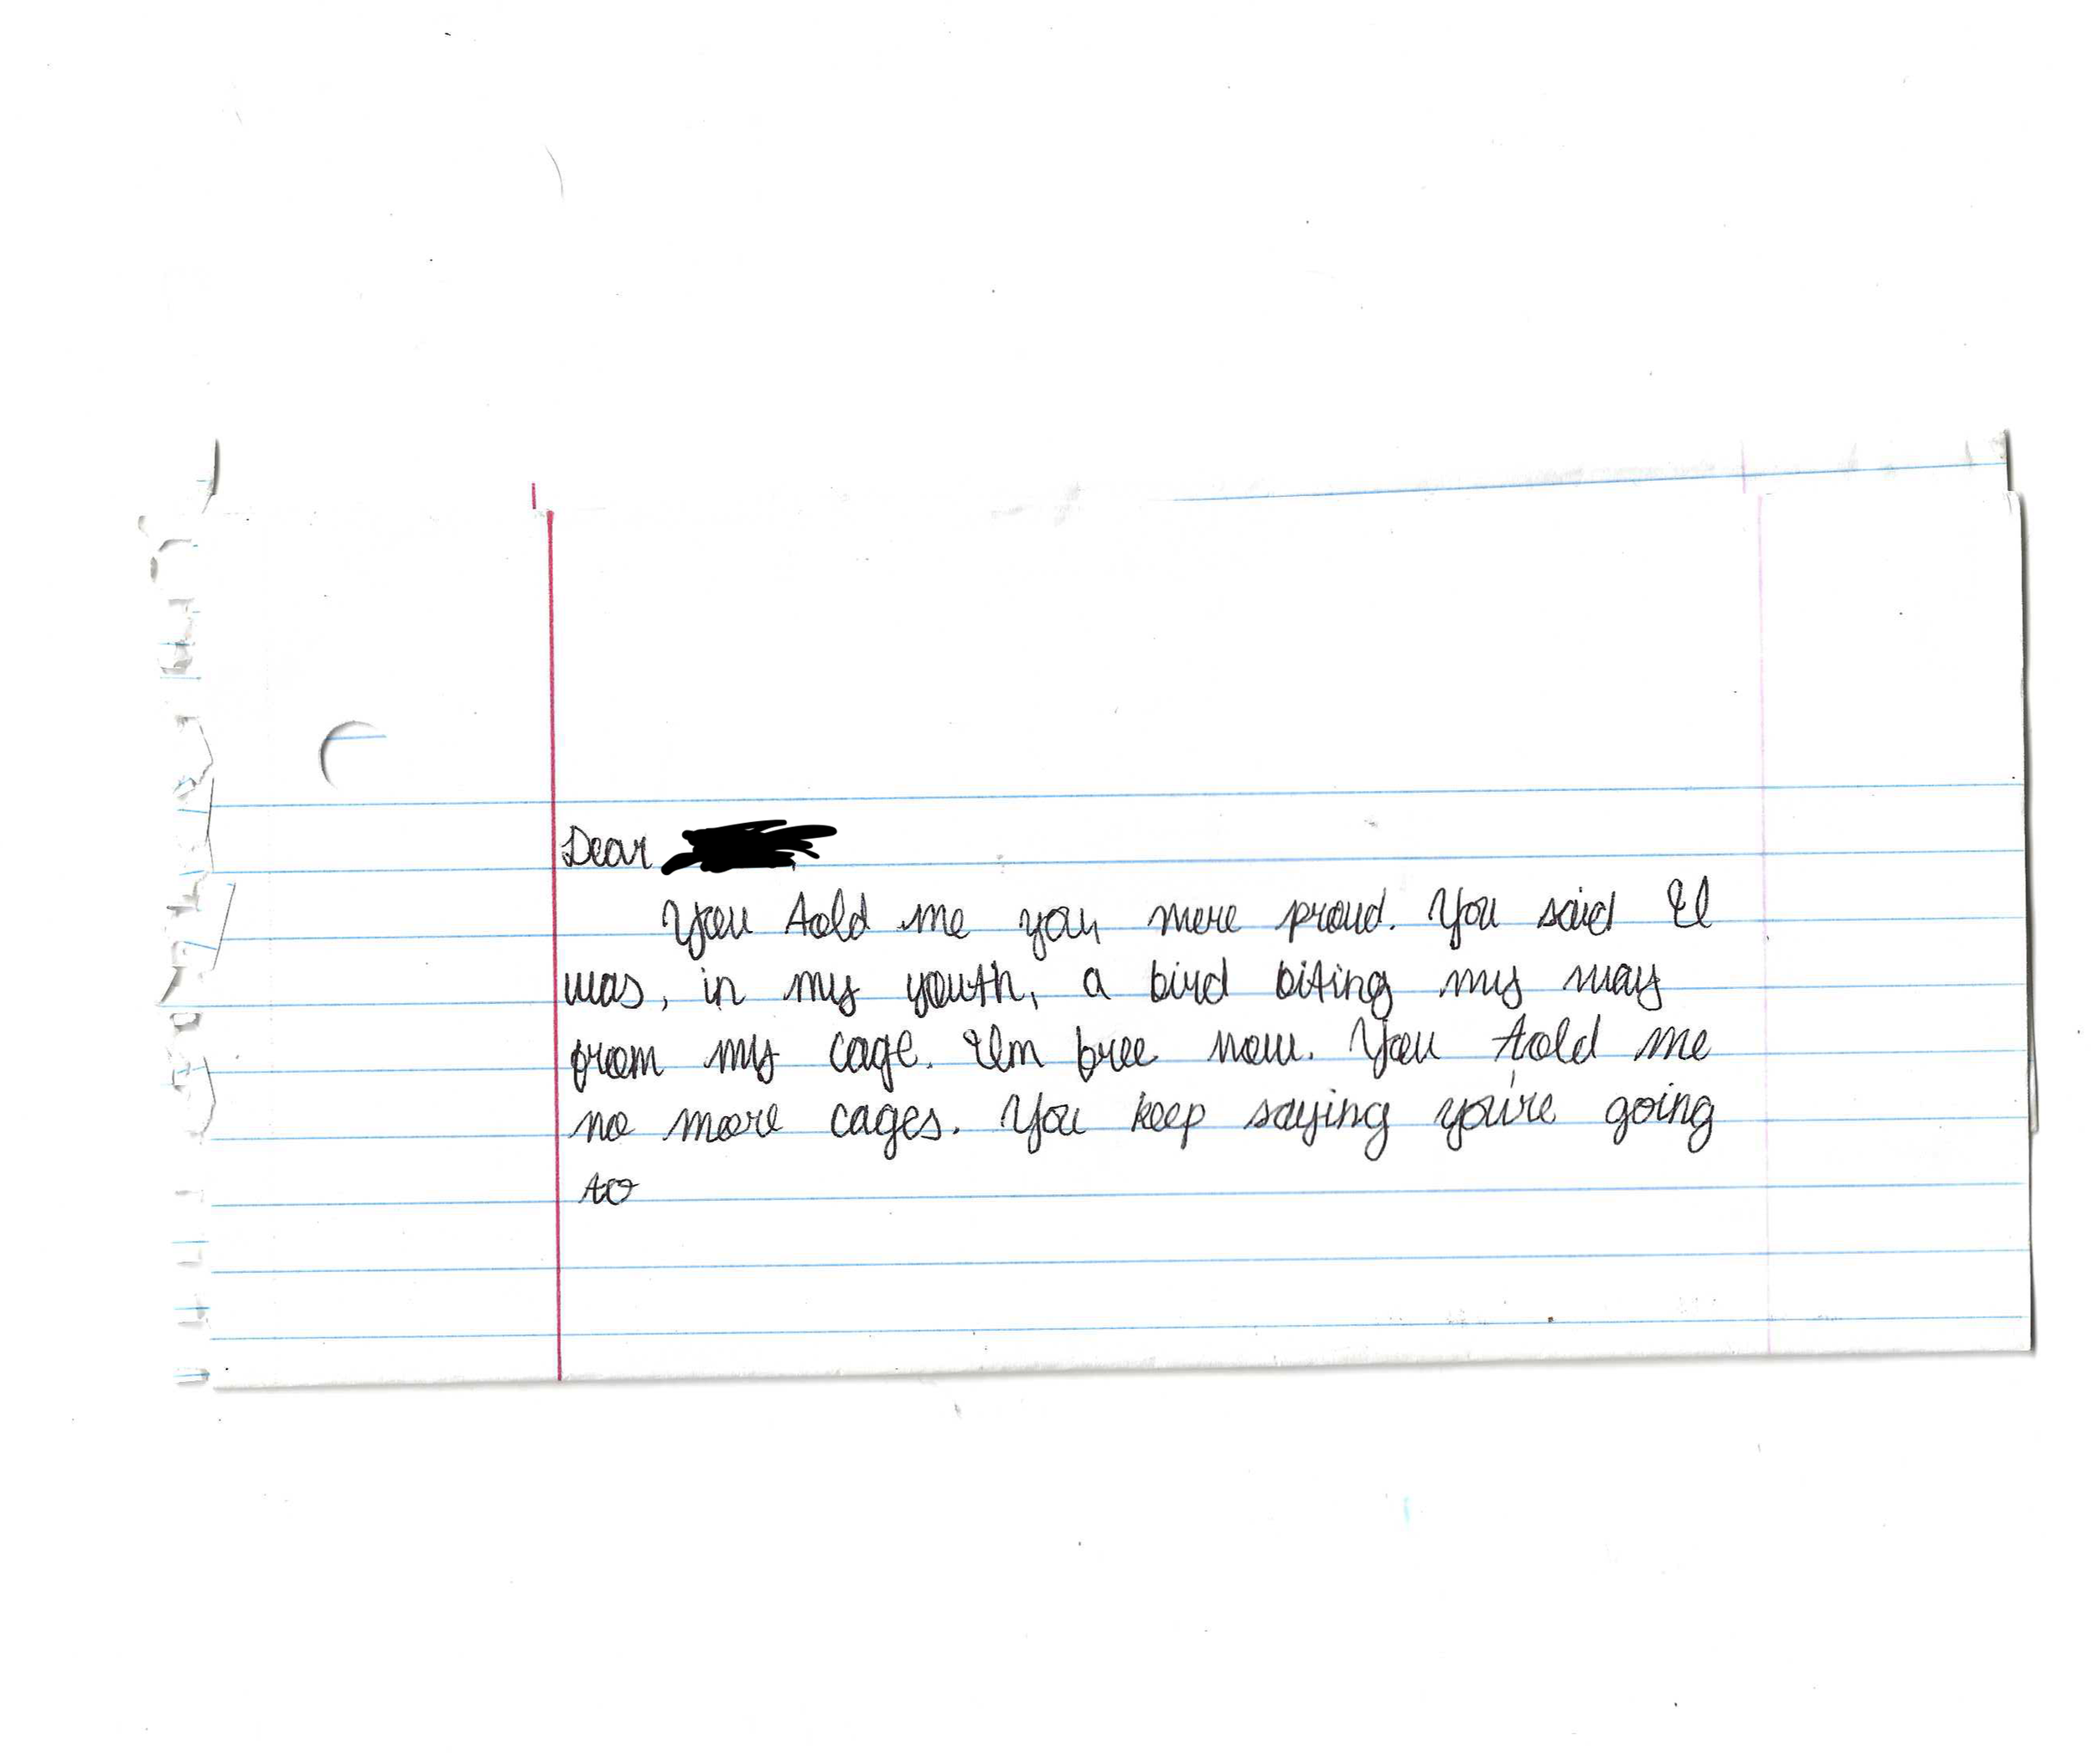 Dear
You told me you were proud. You said I
was, in my youth, a bird biting my way
from my cage. I'm free now. You told me
no more cages. You keep saying you're going
to